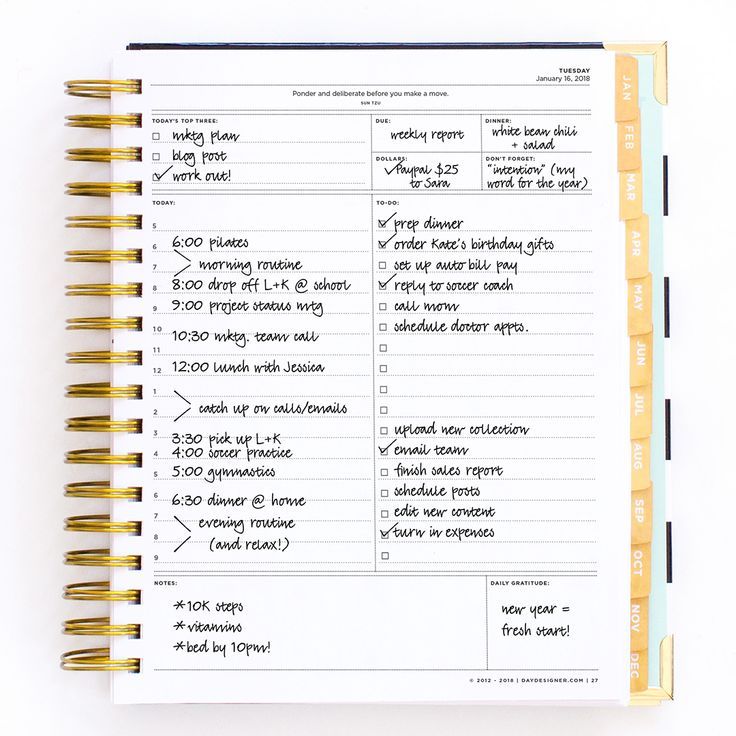 TUESDAY
January 16, 2018
Ponder and deliberate before you make a move.
SUN TZU
TODAY'S TOP THREE:
mktg plan
blog post
work out!
DUE:
weekly report
DINNER:
white bean chili
+ salad
DOLLARS:
Paypal $25
to Sara
DON'T FORGET:
"intention" (my
word for the year)
TODAY:
5
6 6:00 pilates
7 morning routine
8 8:00 drop off L+K @ school
9 9:00 project status mtg
10
10:30 mktg. team call
11
12 12:00 lunch with Jessica
1
2 catch up on calls/emails
3 3:30 pick up L+K
4 4:00 soccer practice
5 5:00 gymnastics
6
6:30 dinner @ home
7 evening routine
8 (and relax!)
9
TO-DO:
prep dinner
order Kate's birthday gifts
set up auto bill pay
reply to soccer coach
call mom
schedule doctor appts.
upload new collection
email team
finish sales report
schedule posts
edit new content
turn in expenses
NOTES:
*10K steps
*vitamins
*bed by 10pm!
DAILY GRATITUDE:
new year =
fresh start!
© 2012 - 2018 | DAYDESIGNER.COM | 27
JAN
FEB
MAR
APR
MAY
JUN
JUL
AUG
SEP
OCT
NOV
DEC